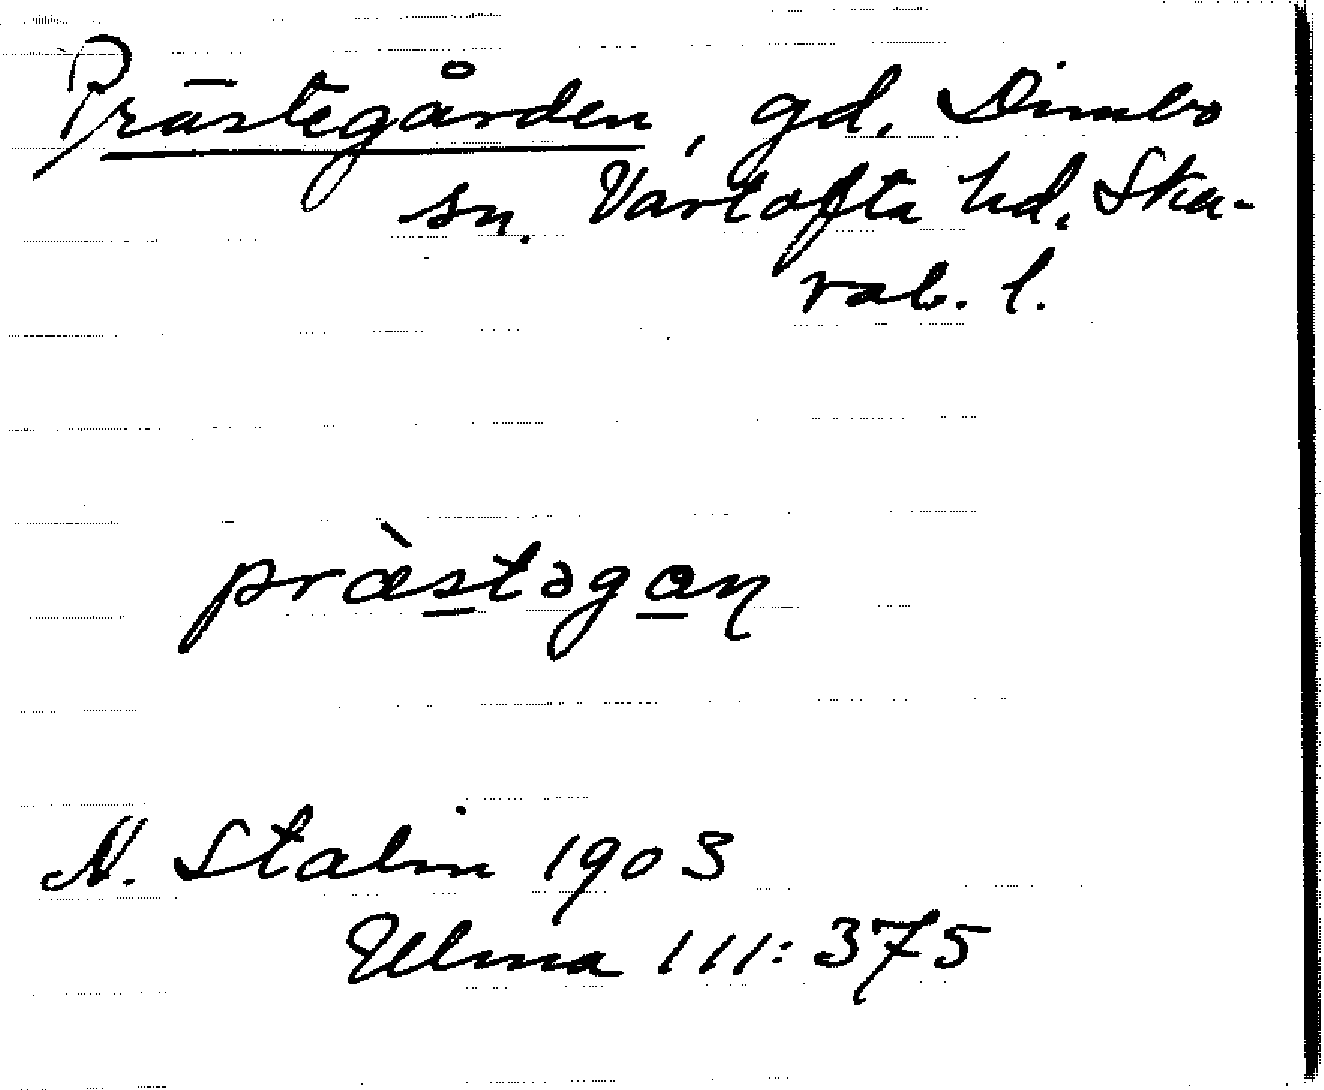 Prästegården, gd. Dimbo
sn. Vartofta hd. Ska-
rab. l.
præ̀stəgan
N. Stalin 1903
Ulma 111:375